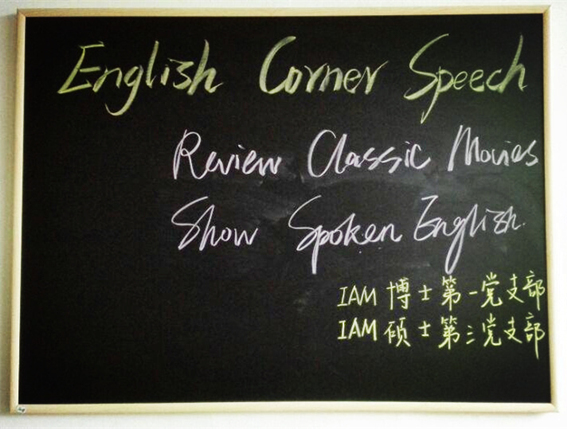 English Corner Speech
Review Classic Movies
Show Spoken English.
IAM 博士第一党支部
IAM 硕士第三党支部